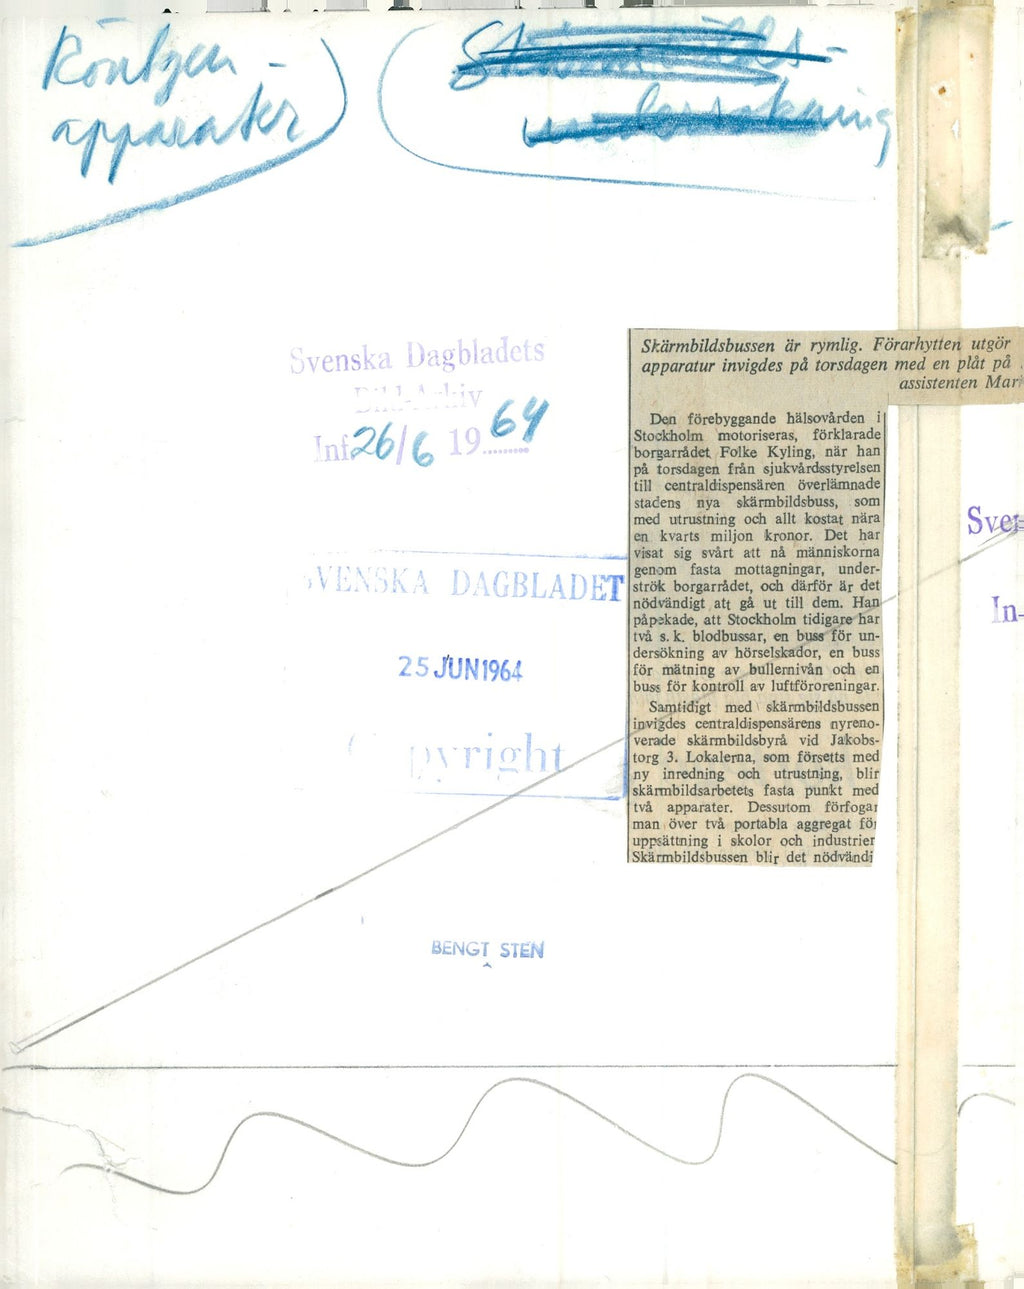 Röntgen-
apparater
Skärmbilds-
undersökning
Svenska Dagbladets
Bild-Arkiv
Inf 26/6 1964
SVENSKA DAGBLADET
25 JUN 1964
Copyright
BENGT STEN
Skärmbildsbussen är rymlig. Förarhytten utgör
apparatur invigdes på torsdagen med en plåt på
assistenten Mar
Den förebyggande hälsovården i
Stockholm motoriseras, förklarade
borgarrådet Folke Kyling, när han
på torsdagen från sjukvårdsstyrelsen
till centraldispensären överlämnade
stadens nya skärmbildsbuss, som
med utrustning och allt kostat nära
en kvarts miljon kronor. Det har
visat sig svårt att nå människorna
genom fasta mottagningar, under-
strök borgarrådet, och därför är det
nödvändigt att gå ut till dem. Han
påpekade, att Stockholm tidigare har
två s. k. blodbussar, en buss för un-
dersökning av hörselskador, en buss
för mätning av bullernivån och en
buss för kontroll av luftföroreningar.
Samtidigt med skärmbildsbussen
invigdes centraldispensärens nyreno-
verade skärmbildsbyrå vid Jakobs-
torg 3. Lokalerna, som försetts med
ny inredning och utrustning, blir
skärmbildsarbetets fasta punkt med
två apparater. Dessutom förfogar
man över två portabla aggregat för
uppsättning i skolor och industrier
Skärmbildsbussen blir det nödvändi
Sven
In